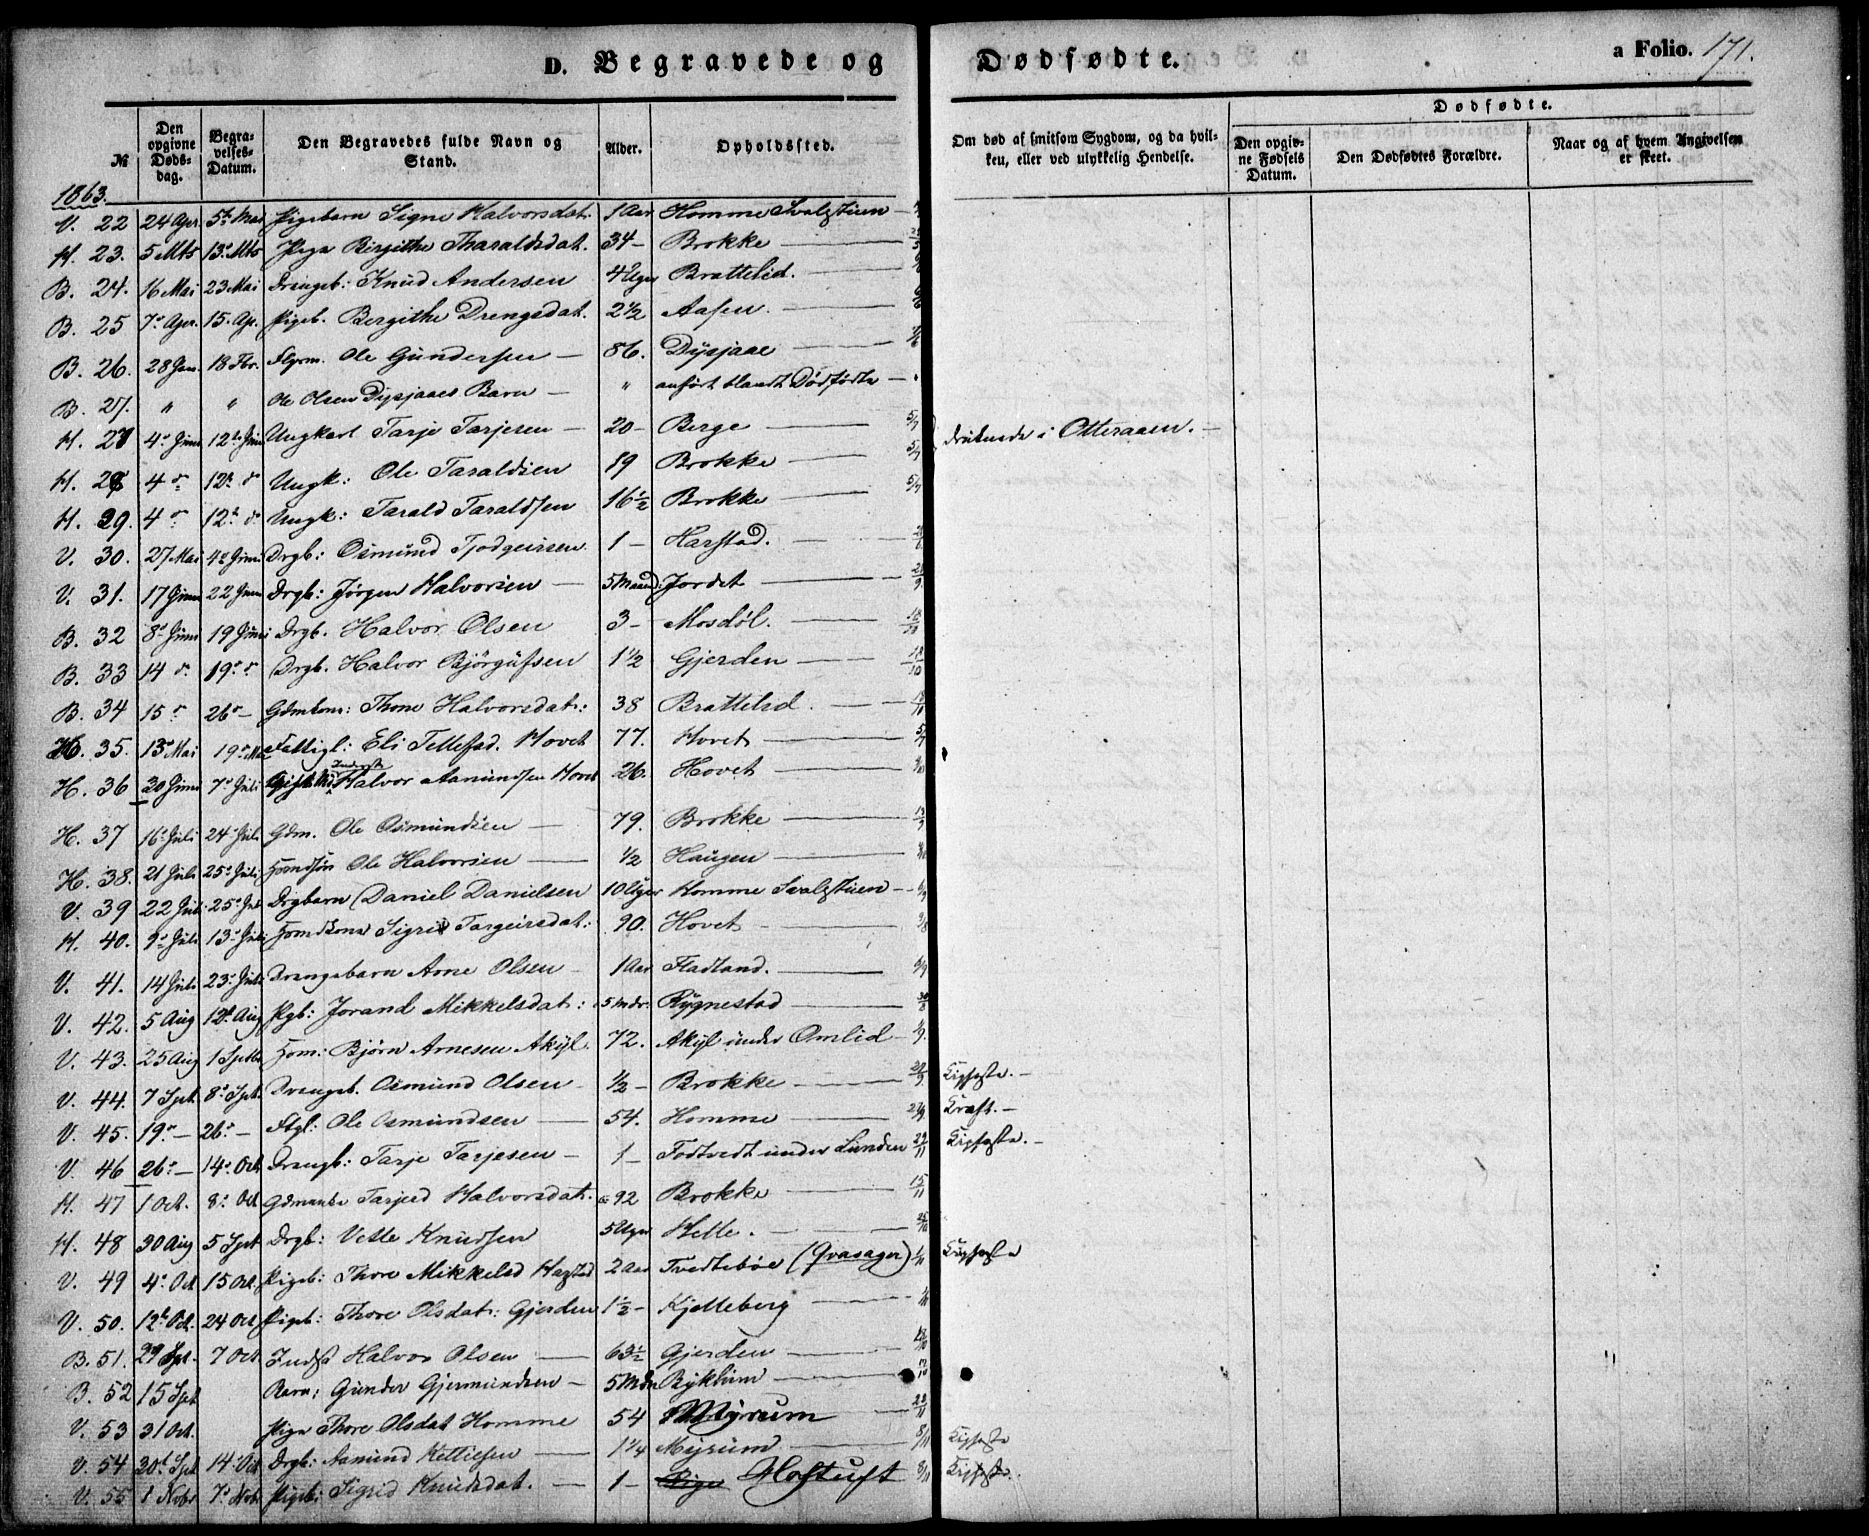 D. Begravede og Dødfødte. a Folio. 171.
№ | Den opgivne Døds-dag. | Begra-velses-Datum. | Den Begravedes fulde Navn og Stand. | Alder. | Opholdssted. | Om død af smitsom Sygdom, og da hvil-ken, eller ved ulykkelig Hendelse. | Dødfødte. | Den opgiv-ne Fødsels Datum. | Den Dødfødtes Forældre. | Naar og af hvem Angivelsen er skeet.
1863.
V. 22 24 Apr. 5te Mai Pigebarn Signe Halvorsdat. 1 Aar Homme Svalestuen
H. 23. 5 Mts 13de Mts Pige Birgithe Tharaldsdat. 34 - Brokke
B. 24. 16 Mai 23 Mai Drengeb: Knud Andersen 4 Uger Brattelid.
B. 25 7de Apr. 15. Ap. Pigeb. Bergithe Drengsdat. 2½ Aasen.
B. 26. 28 Jan. 18 Fbr. Ole Gundersen 86. Dysjaae
B. 27. " " Ole Olsen Dysjaaes Barn - " anført blandt Dødfødte
H. 27 4de Juni 12te Juni Ungkarl Tarje Tarjesen 20 - Berge 5/7 druknede i Otteraaen.
H. 28 4 do 12te do Ungk: Ole Taraldsen 19 Brokke 5/7
H. 29. 4 do 12te do Ungk: Tarald Taraldsen 16½ Brokke 5/7
V. 30. 27 Mai 4de Juni Drgb: Osmund Tjodgeirsen 1 - Harstad.
V. 31. 17 Juni 22 Juni Drgb: Jørgen Halvorsen 5 Maand: Jordet
B. 32 8de Juni 19 Juni Drgb. Halvor Olsen 3 - Mosdøl. 18/10
B. 33 14 do 19de do Drgb. Halvor Bjørgufsen 1½ Gjerden 18/10
B. 34 15 do 26de - Gdmkone: Thone Halvorsdat: 38 Brattelid. 18/10
H. 35. 13de Mai 19de Mai Fattigl: Eli Tellefsd. Hovet 77. Hovet 5/7
H. 36 30 Juni 7de Juli Inderst Halvor Aamundsen Hovet 26. Hovet
H. 37 16de Juli 24de Juli Gdm. Ole Osmundsen 79. Brokke
H. 38. 21 Juli 25de Juli Ole Halvorsen ½ Haugen
V. 39 22 Juli 25de Juli Drgbarn Daniel Danielsen 10 Uger Homme Svalestuen
H. 40. 9de Juli 13de Juli Sigrid Targeirsdat: 90. Hovet
V. 41. 14 Juli 23de Juli Drengebarn Arne Olsen 1 Aar Fladland.
V. 42. 5 Aug 12te Aug Pgb: Jorand Mikkelsdat: 5 Mdr. Rygnestad 30/8
V. 43. 25 Aug 1 Septbr Bjørn Arnesen Akyl. 72. Akyl under Omlid
V. 44. 7 Spt 8de Spt. Drengeb. Osmund Olsen ½ - Brokke Kighoste.
V. 45. 19de - 26de - Ftgl: Ole Osmundsen 54. Homme Kræft.
V. 46 26de - 14de Oct Drengb: Tarje Tarjesen - 1 - Fodtvedt under Lunden 29/11 Kighoste.
H. 47 1 Oct. 8de Oct Gdmenke Tarjerd Halvorsdat. 92 Brokke 15/11
H. 48 30 Aug 5 Spt Drgb: Vetle Knudsen 5 Uger Helle.
V. 49 4de Oct 15 Oct. Pigeb: Thore Mikkelsd Hagstad 2 Aar Tvedtebøe (Qvasager) Kighoste
V. 50. 12te Oct. 24 Oct Pigeb: Thore Olsdat: Gjerden 1½ - Kjelleberg
B. 51. 29 Spt. 7 Oct Inderst Halvor Olsen 63½ Gjerden 18/10
B. 52 15 Spt Barn: Gunder Gjermundsen - 5 Mdr Bykleim
V. 53 31 Oct. Pige Thore Olsdat Homme 54 Myrum
V. 54 30te Spt 14de Oct Drgb: Aamund Kettilsen 1¼ Myrum 8/11 Kighoste
V. 55 1 Nobr 7de Nobr Pigeb: Sigrid Knudsdat. 1 - Hoftuft 8/11 Kighoste.